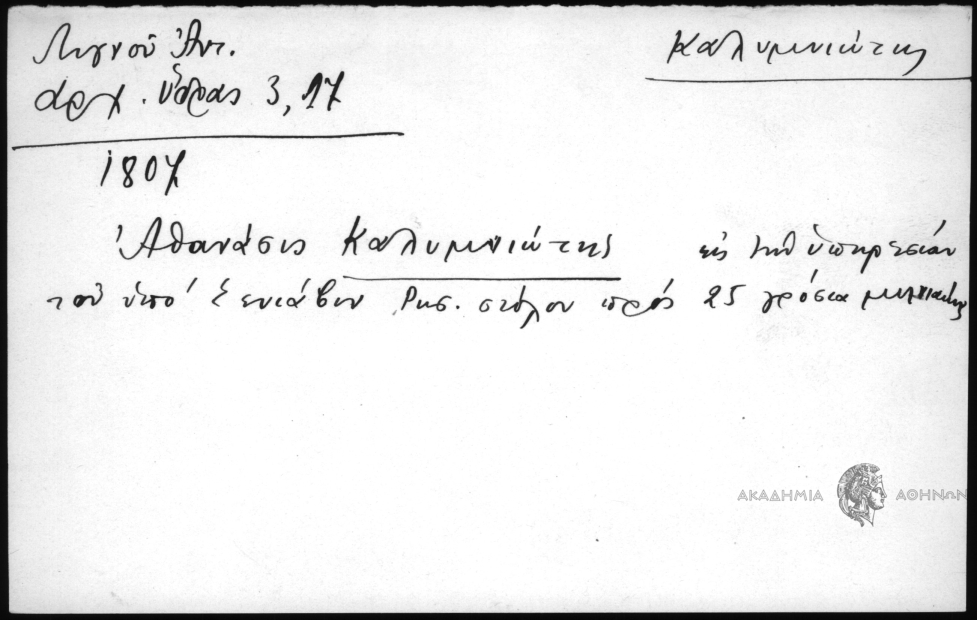 Λιγνοῦ Ἀντ.
ἀρχ. Ὕδρας 3, 17
Καλυμνιώτης
1807
Ἀθανάσις Καλυμνιώτης εἰς τὴν ὑπηρεσίαν
τοῦ ὑπό Σενιάβιν Ρωσ. στόλου πρός 25 γρόσια μηνιαίως
ΑΚΑΔΗΜΙΑ ΑΘΗΝΩΝ